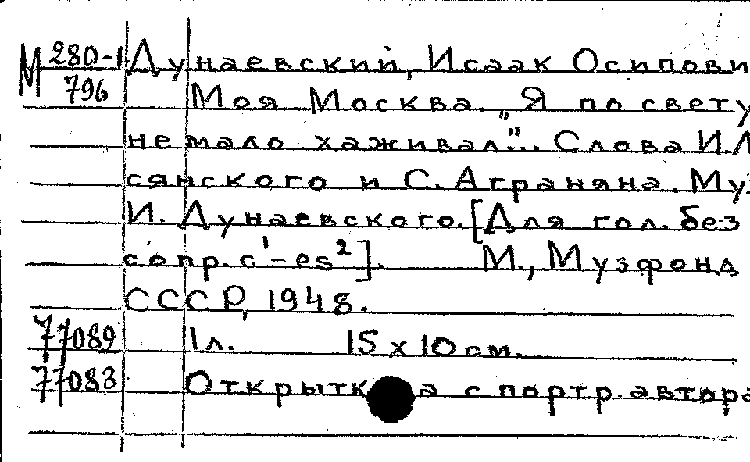 М 280-1 Дунаевский, Исаак Осипови
796 Моя Москва. „Я по свету
не мало хаживал"... Слова И.Л
сянского и С. Аграняна. Муз
И. Дунаевского. [Для гол. без
сопр. c¹-es²]. М., Музфонд
СССР, 1948.
77089 1л. 15х10см.
77083 Открытка с портр. автора